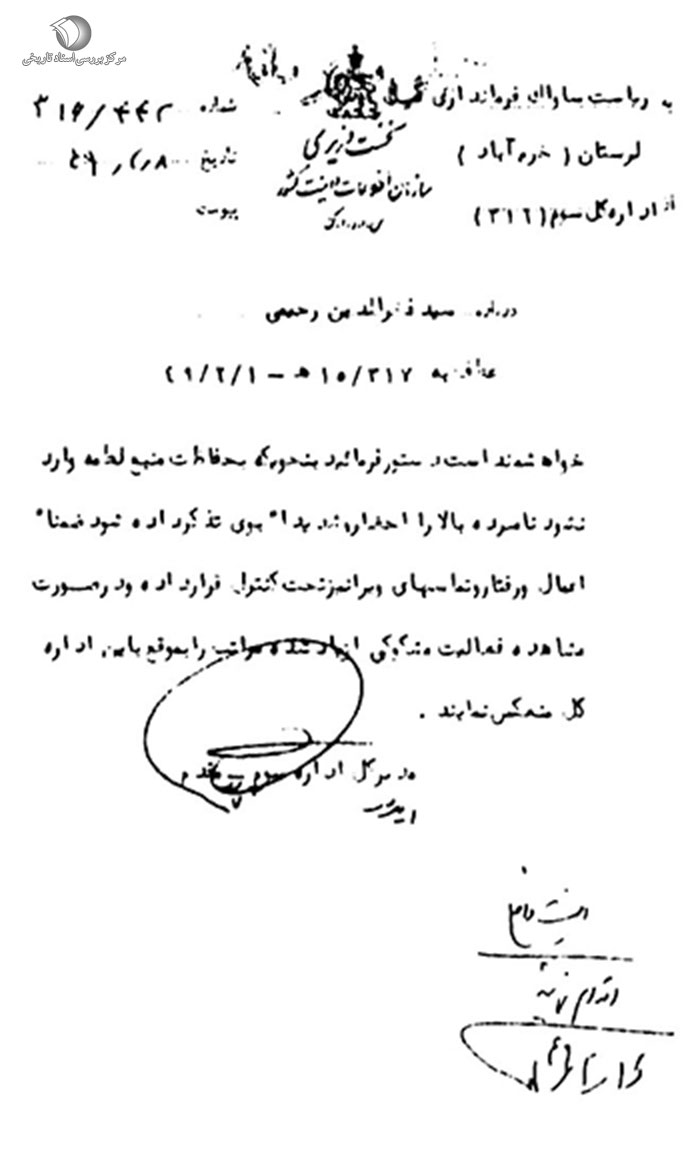 مرکز بررسی اسناد تاریخی
به ریاست ساواك فرمانداری کل
لرستان ( خرم آباد )
از اداره کل سوم (۳۱۶)
نخست وزیری
سازمان اطلاعات و امنیت کشور
س.ا.و.ا.ک
شماره ۳۱۶/۴۴۲
تاریخ
پیوست
درباره سید فخرالدین رحیمی
عطف به ۱۵/۳۱۷ ه – ۴۹/۲/۱
خواهشمند است دستور فرمائید بنحویکه بحفاظت منبع لطمه وارد
نشود نامبرده بالا را احضار و شدیداً بوی تذکر داده شود ضمناً
اعمال و رفتار و تماسهای ویرا نیز تحت کنترل قرار داده و در صورت
مشاهده فعالیت مشکوکی از یاد شده مراتب را بموقع باین اداره
کل منعکس نمایند .
مدیر کل اداره سوم مقدم